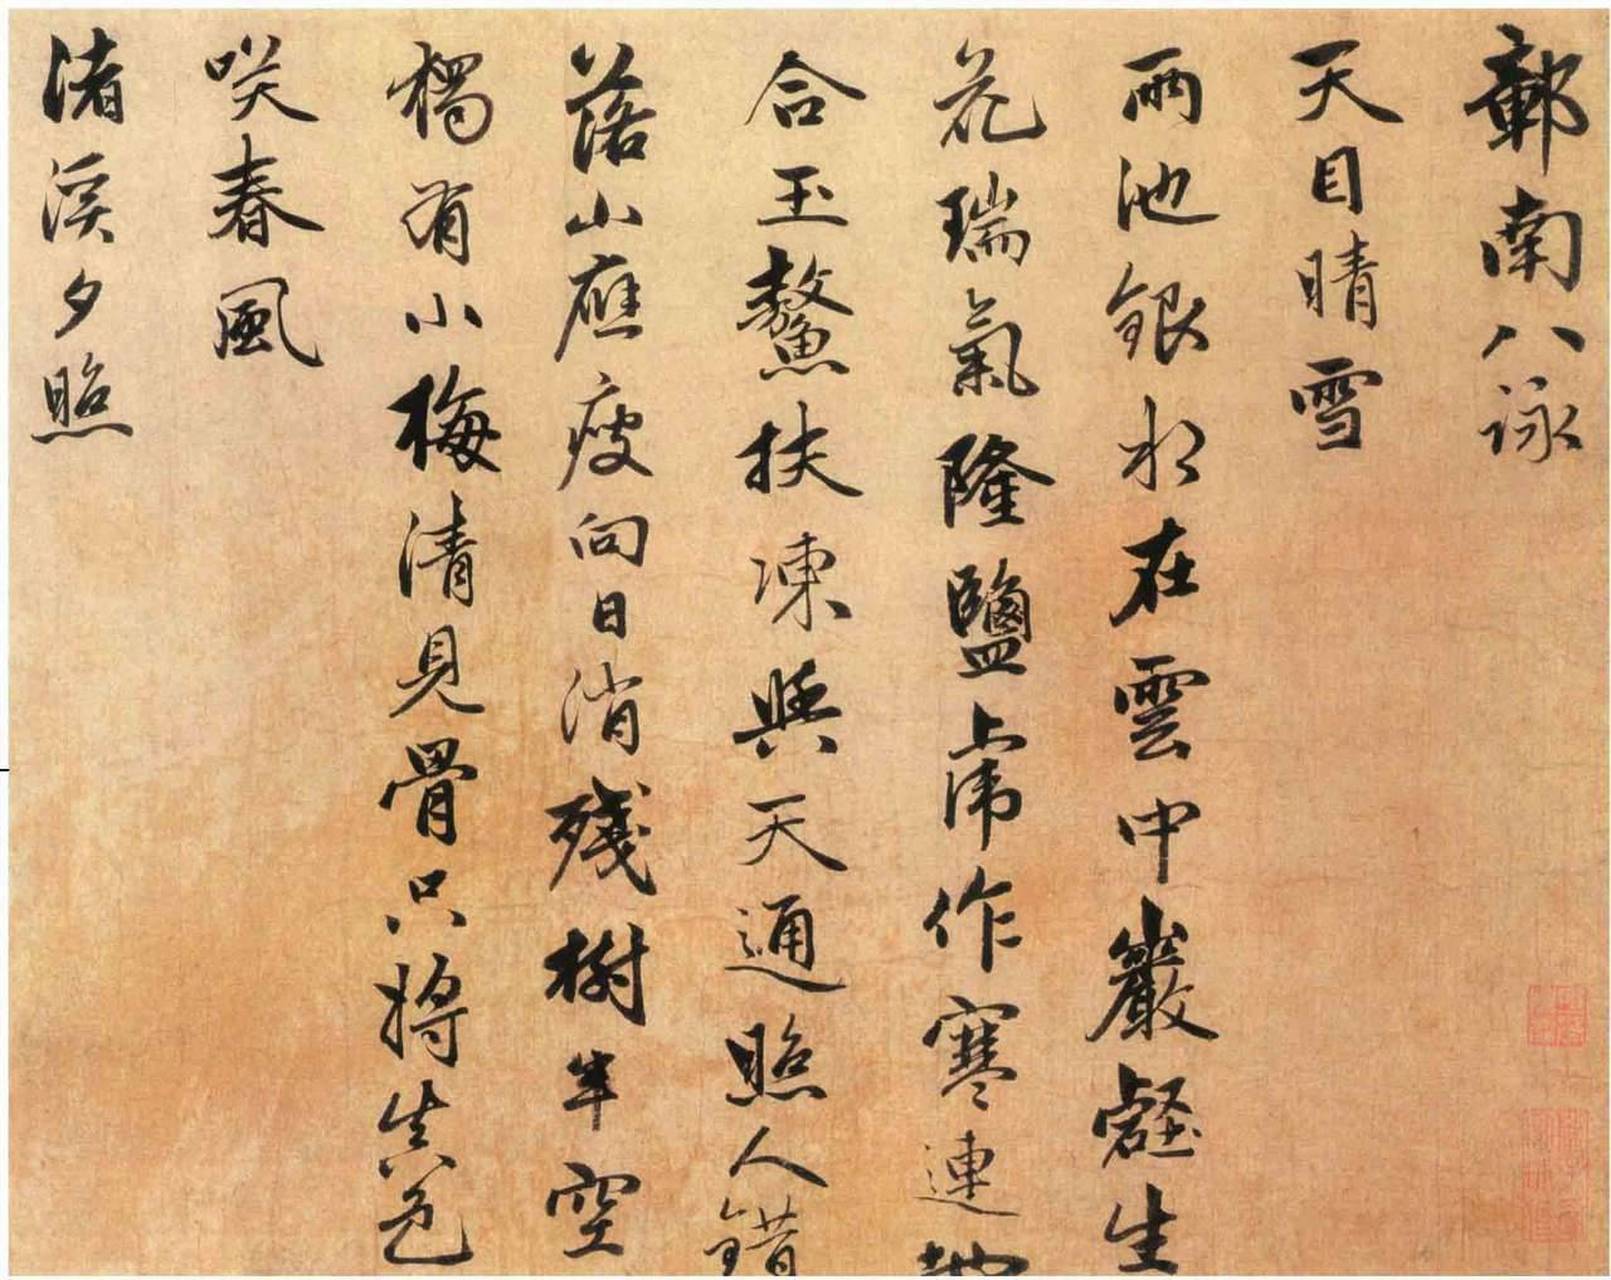 鄣南八詠
天目晴雪
兩池銀水在雲中巖壑生
花瑞氣隆鹽虎作寒連地
合玉鰲扶凍與天通照人錯
落山應瘦向日消殘樹半空
獨有小梅清見骨只將真色
咲春風
渚溪夕照